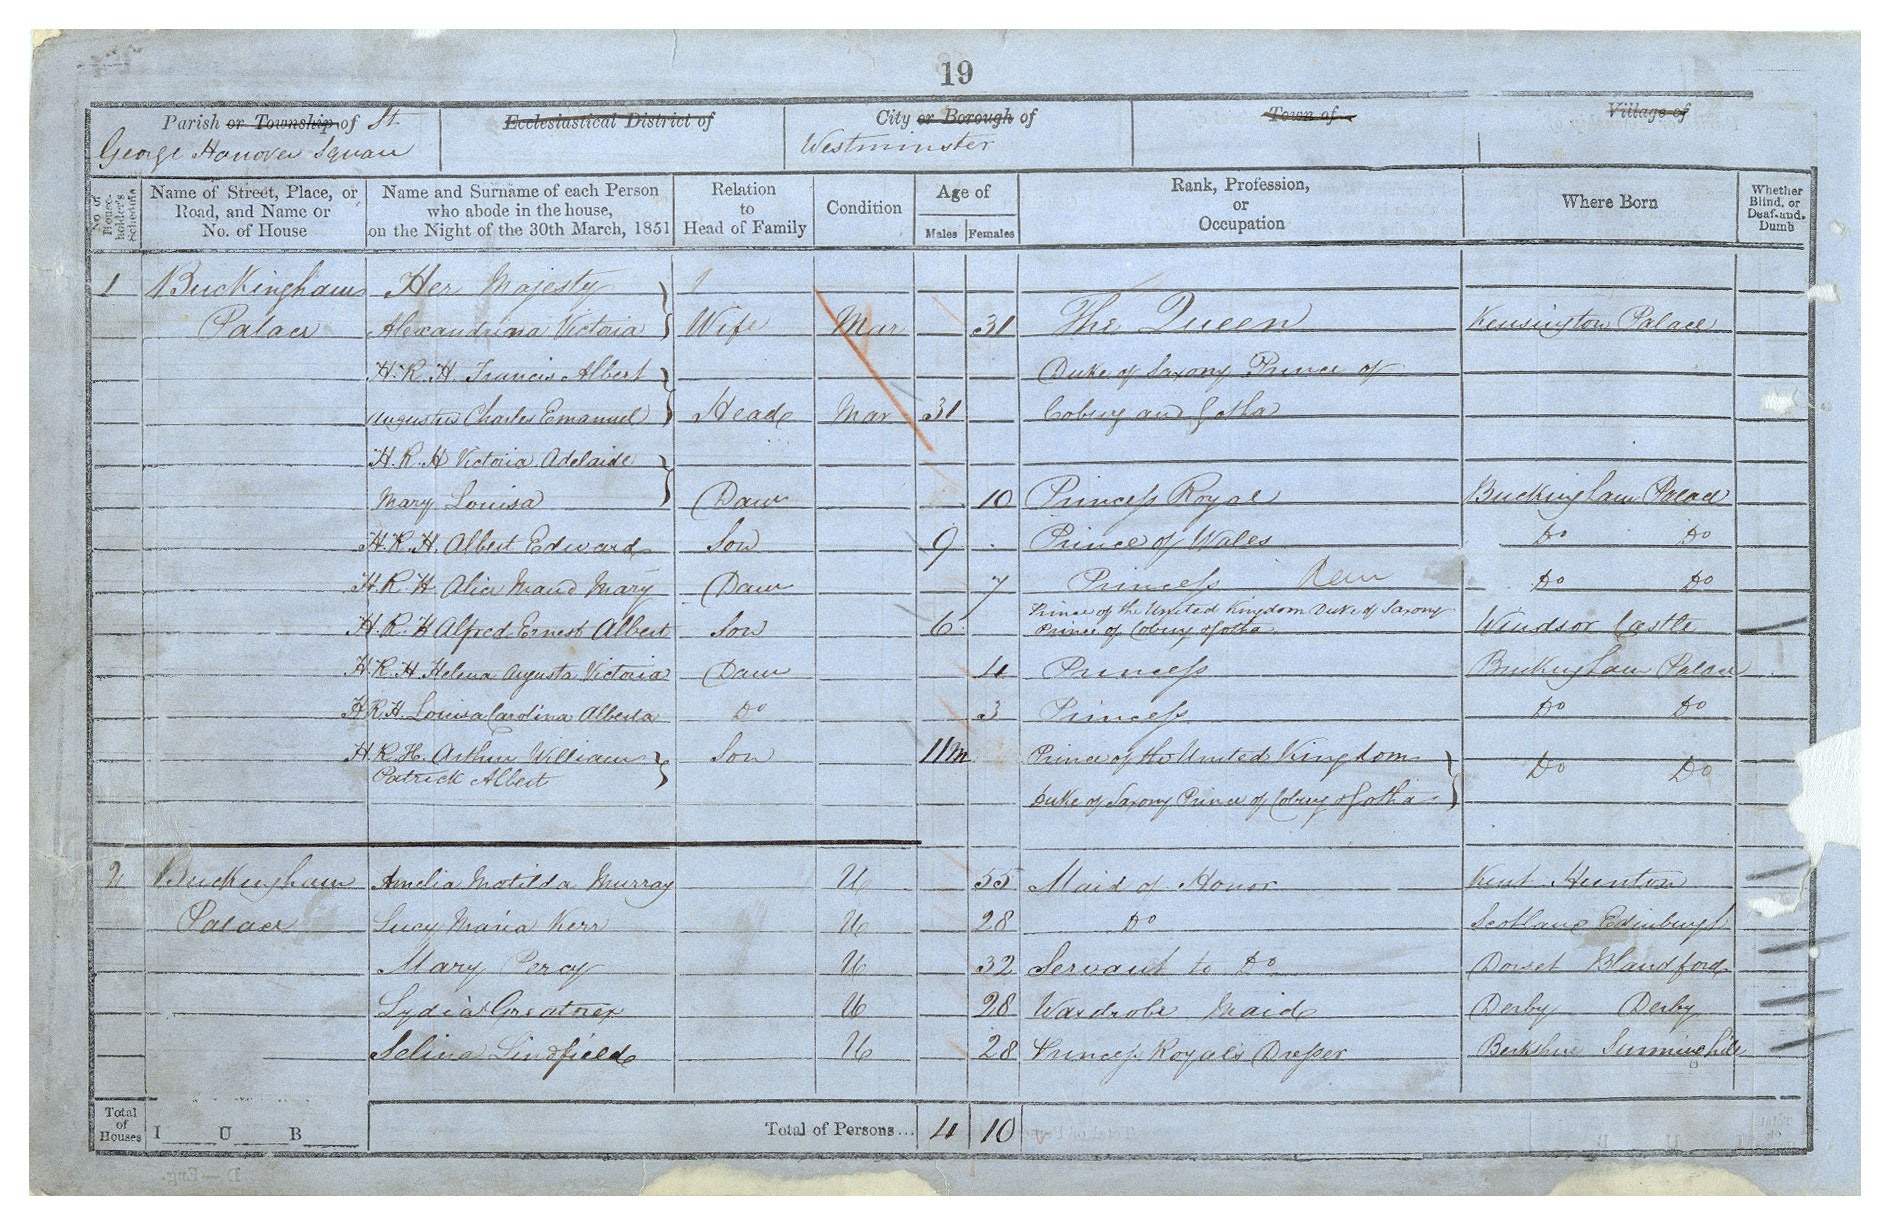 19
Parish or Township of St.
George Hanover Square
Ecclesiastical District of
City or Borough of
Westminster
Town of
Village of
No. of House-holder's Schedule
Name of Street, Place, or Road, and Name or No. of House
Name and Surname of each Person who abode in the house, on the Night of the 30th March, 1851
Relation to Head of Family
Condition
Age of
Males
Females
Rank, Profession, or Occupation
Where Born
Whether Blind, or Deaf-and-Dumb
1 Buckingham Her Majesty
Palace Alexandrina Victoria Wife Mar 31 The Queen Kensington Palace
H.R.H. Francis Albert Duke of Saxony Prince of
Augustus Charles Emanuel Head Mar 31 Coburg and Gotha
H.R.H Victoria Adelaide
Mary Louisa Daur 10 Princess Royal Buckingham Palace
H.R.H. Albert Edward Son 9 Prince of Wales Do Do
H.R.H. Alice Maud Mary Daur 7 Princess Do Do
H.R.H Alfred Ernest Albert Son 6 Prince of the United Kingdom Duke of Saxony
Prince of Coburg & Gotha Windsor Castle
H.R.H Helena Augusta Victoria Daur 4 Princess Buckingham Palace
H.R.H. Louisa Carolina Alberta Do 3 Princess Do Do
H.R.H. Arthur William Son 11m Prince of the United Kingdom Do Do
Patrick Albert
Duke of Saxony Prince of Coburg & Gotha
2 Buckingham Amelia Matilda Murray U 55 Maid of Honor Kent Hunton
Palace Lucy Maria Kerr U 28 Do Scotland Edinburgh
Mary Percy U 32 Servant to Do Dorset Blandford
Lydia Greatorex U 28 Wardrobe Maid Derby Derby
Selina Lindfield U 28 Princess Royal's Dresser Berkshire Sunninghill
Total of Houses I U B
Total of Persons... 4 10
D—Eng.